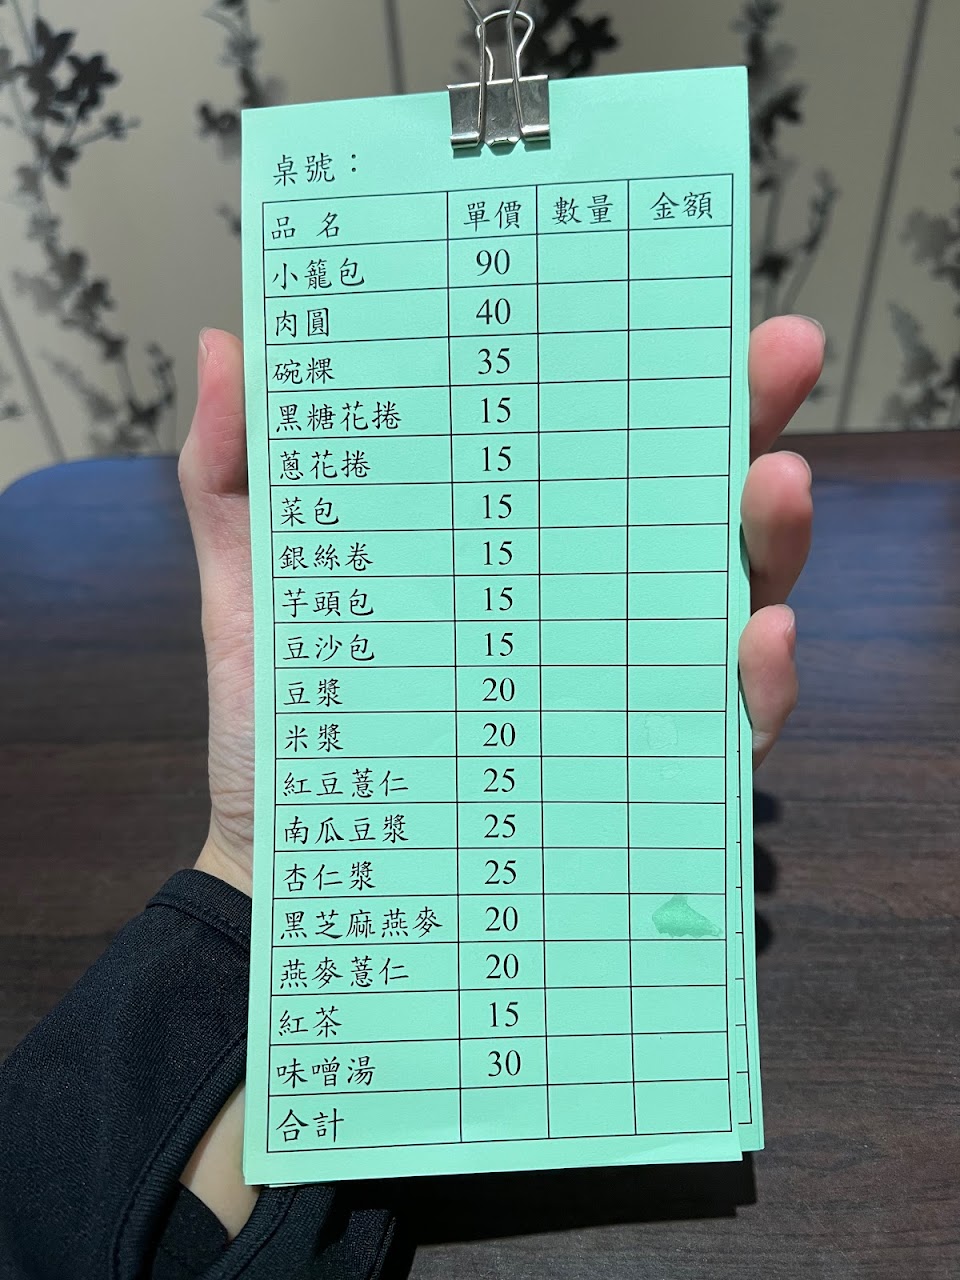 桌號：
品 名 單價 數量 金額
小籠包 90
肉圓 40
碗粿 35
黑糖花捲 15
蔥花捲 15
菜包 15
銀絲卷 15
芋頭包 15
豆沙包 15
豆漿 20
米漿 20
紅豆薏仁 25
南瓜豆漿 25
杏仁漿 25
黑芝麻燕麥 20
燕麥薏仁 20
紅茶 15
味噌湯 30
合計